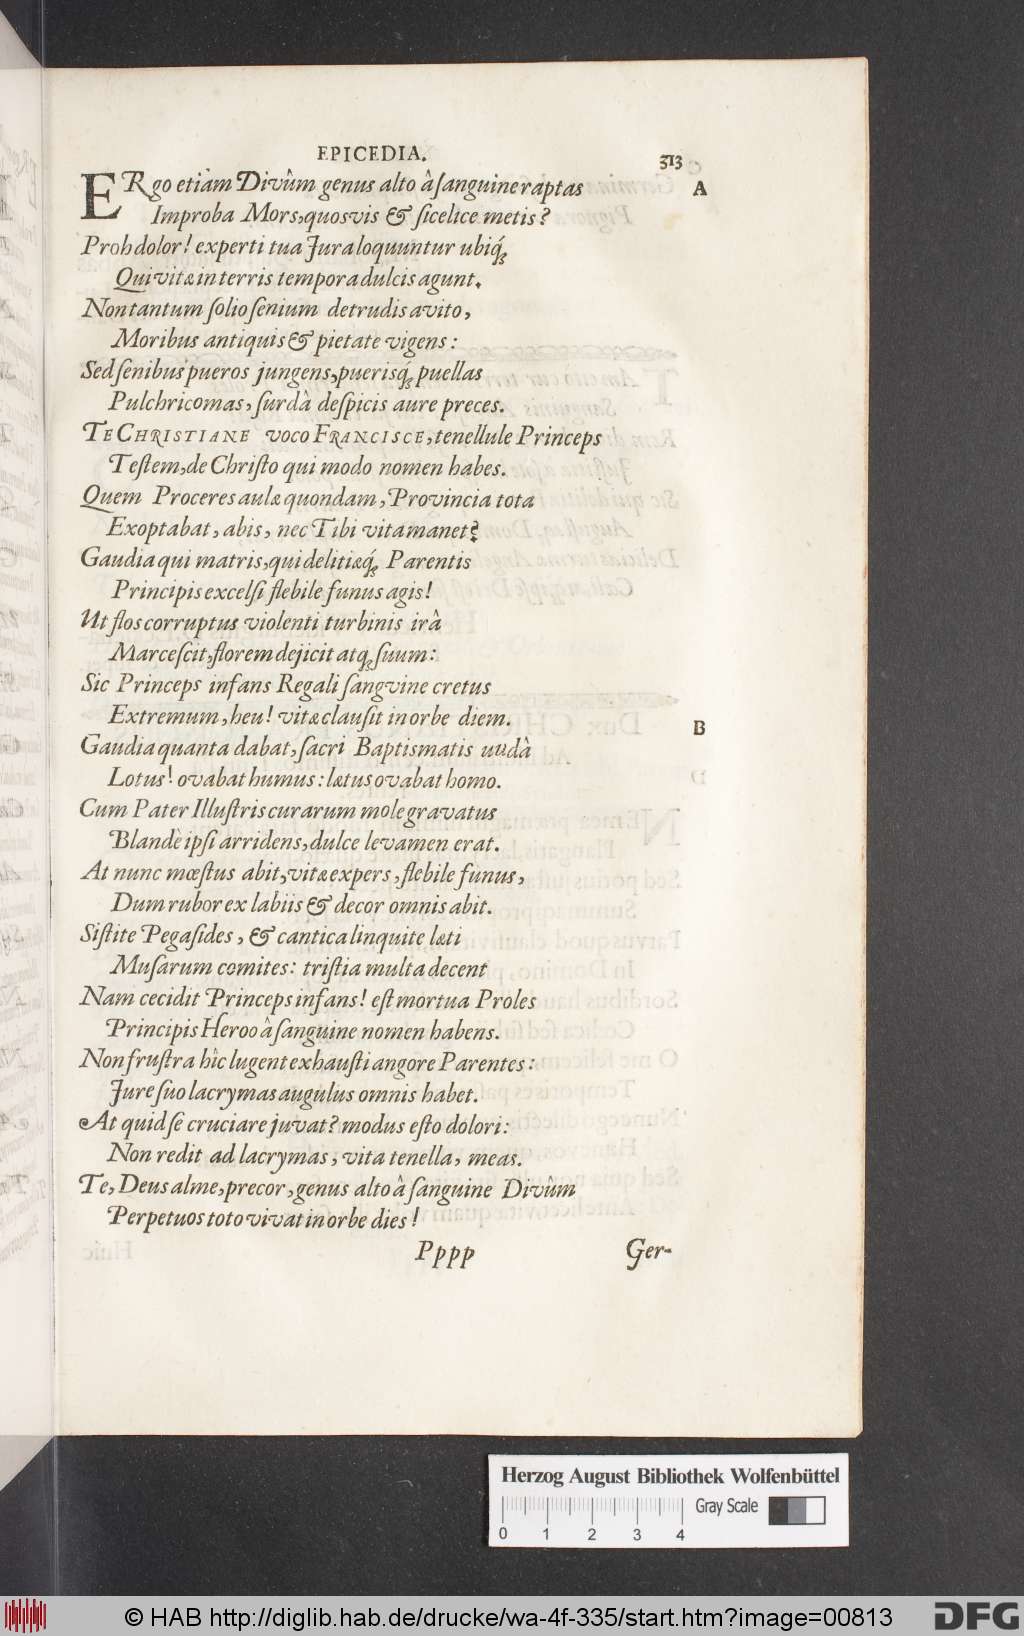 EPICEDIA. 313
ERgo etiàm Divûm genus alto â ſanguine raptas A
Improba Mors, quosvis & ſicelice metis?
Proh dolor! experti tua Jura loquuntur ubiq́ꝫ
Qui vitæ in terris tempora dulcis agunt.
Non tantum ſolio ſenium detrudis avito,
Moribus antiquis & pietate vigens:
Sed ſenibus pueros jungens, puerisq́ꝫ puellas
Pulchricomas, ſurdà deſpicis aure preces.
TE CHRISTIANE voco FRANCISCE, tenellule Princeps
Teſtem, de Chriſto qui modo nomen habes.
Quem Proceres aulæ quondam, Provincia tota
Exoptabat, abis, nec Tibi vita manet?
Gaudia qui matris, qui delitiæq́ꝫ Parentis
Principis excelſi flebile funus agis!
Ut flos corruptus violenti turbinis irâ
Marceſcit, florem dejicit atqꝫ ſuum:
Sic Princeps infans Regali ſangvine cretus
Extremum, heu! vitæ clauſit in orbe diem. B
Gaudia quanta dabat, ſacri Baptismatis undà
Lotus! ovabat humus: lætus ovabat homo.
Cum Pater Illuſtris curarum mole gravatus
Blandè ipſi arridens, dulce levamen erat.
At nunc mœſtus abit, vitæ expers, flebile funus,
Dum rubor ex labiis & decor omnis abit.
Siſtite Pegaſides, & cantica linquite læti
Muſarum comites: triſtia multa decent
Nam cecidit Princeps infans! eſt mortua Proles
Principis Heroo â ſanguine nomen habens.
Non fruſtra hîc lugent exhauſti angore Parentes:
Jure ſuo lacrymas augulus omnis habet.
At quid ſe cruciare juvat? modus eſto dolori:
Non redit ad lacrymas, vita tenella, meas.
Te, Deus alme, precor, genus alto â ſanguine Divûm
Perpetuos toto vivat in orbe dies!
Pppp Ger-
Herzog August Bibliothek Wolfenbüttel
Gray Scale
0 1 2 3 4
© HAB http://diglib.hab.de/drucke/wa-4f-335/start.htm?image=00813 DFG